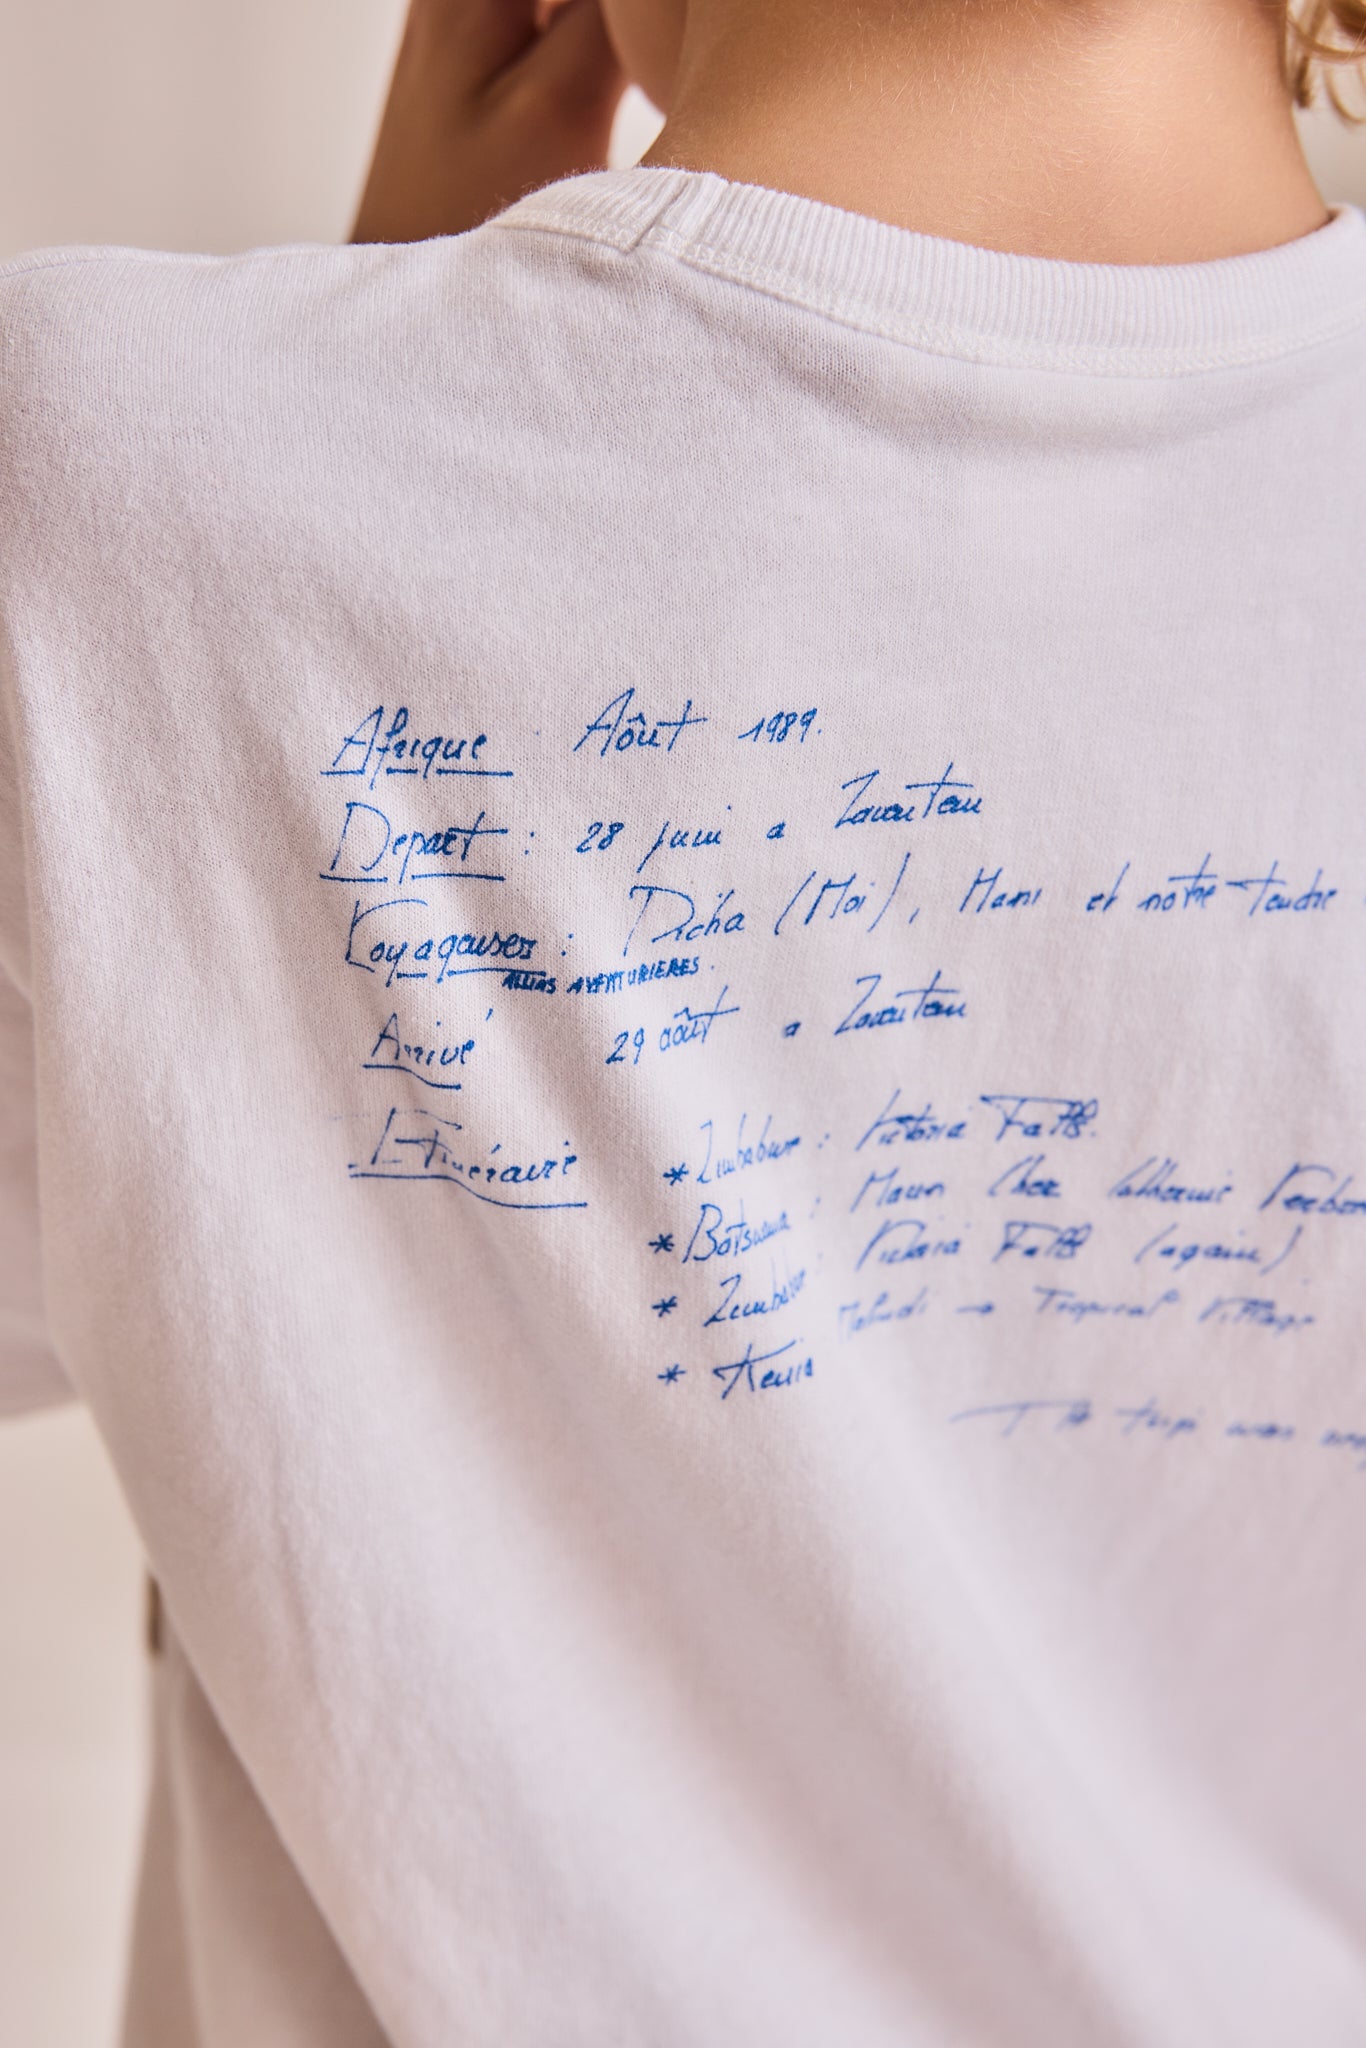 Afrique : Aôut 1989.
Depart : 28 juin a Zavautem
Voyageuses : Dicha (Moi), Mami et notre tendre
ALLIAS AVENTURIERES.
Arrivé 29 aôut a Zavautem
Itinéraire * Zimbabwe : Victoria Falls.
* Botswana : Maun Chez Catherine
* Zimbabwe : Victoria Falls (again)
* Kenia Malindi → Tropical Village
The trip was